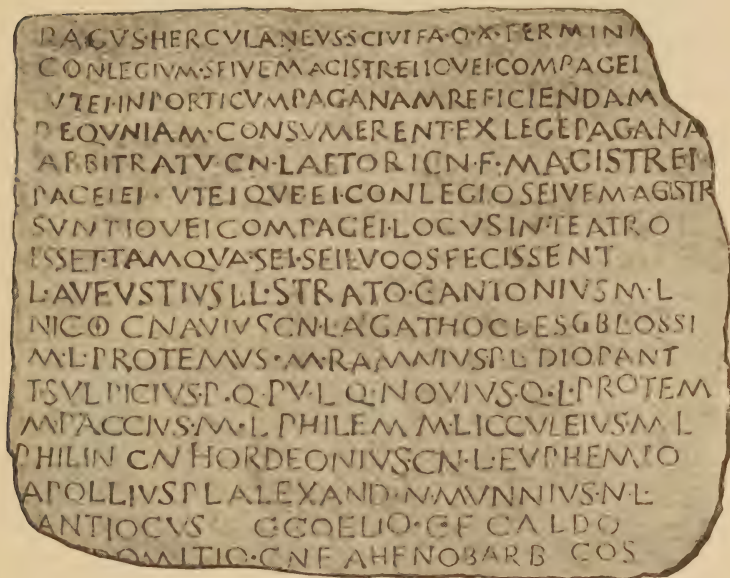 PAGVS·HERCVLANEVS·SCIVIT·A·D·X·TERMINA
CONLEGIVM·SEIVE MAGISTREI IOVEI COMPAGEI
VTEI·IN PORTICVM PAGANAM REFICIENDAM
PEQVNIAM·CONSVMERENT·EX LEGE PAGANA
ARBITRATV·CN·LAETORI CN·F·MAGISTREI·
PAGEIEI·VTEIQVE·EI·CONLEGIO SEIVE MAGISTR
SVNT IOVEI COMPAGEI·LOCVS IN·TEATRO
ESSET·TAMQVA·SEI·SEI LVDOS FECISSENT
L·AVFVSTIVS L·L·STRATO·C·ANTONIVS M·L
NICO CN AVIVS CN·L·AGATHOCLES C BLOSSI
M·L·PROTEMVS·M·RAMNIVS P·L DIOPANT
T SVLPICIVS·P·Q·PV·L Q·NOVIVS·Q·L·PROTEM
M PACCIVS·M·L PHILEM M·LICCVLEIVS·M L
PHILIN CN HORDEONIVS CN·L·EVPHEMIO
A POLLIVS P L ALEXAND·N·MVNNIVS·N·L
ANTIOCVS C·COELIO·C·F CALDO
DOMITIO·CN F AHENOBARB COS